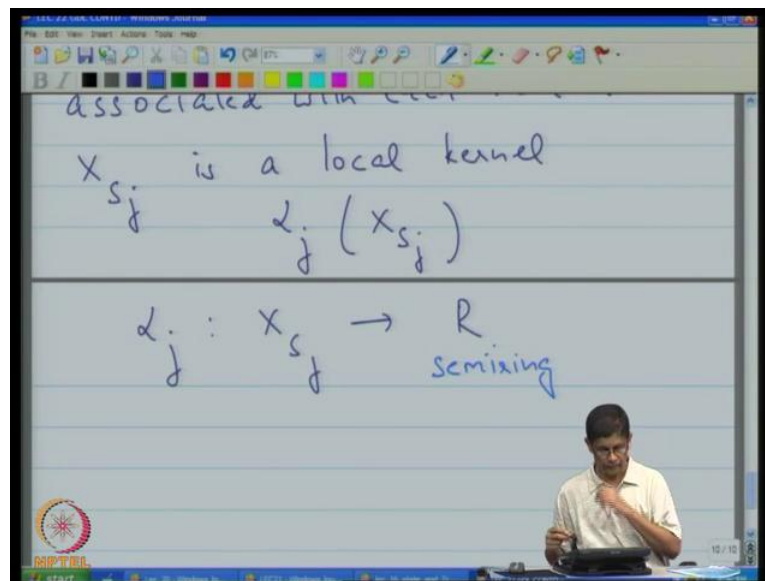 LEC 22 GDL CONTD - Windows Journal
File Edit View Insert Actions Tools Help
87%
B I
associated with
X_{S_j} is a local kernel
α_j (X_{S_j})
α_j : X_{S_j} → R
semiring
10 / 10
NPTEL
start